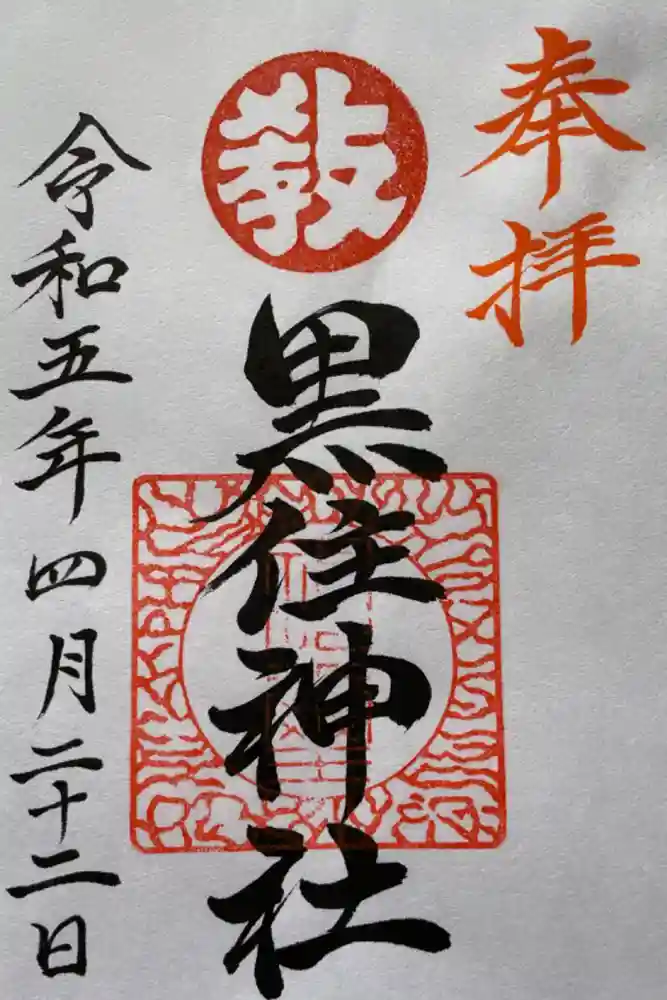 奉拝
教
黒住神社
令和五年四月二十二日